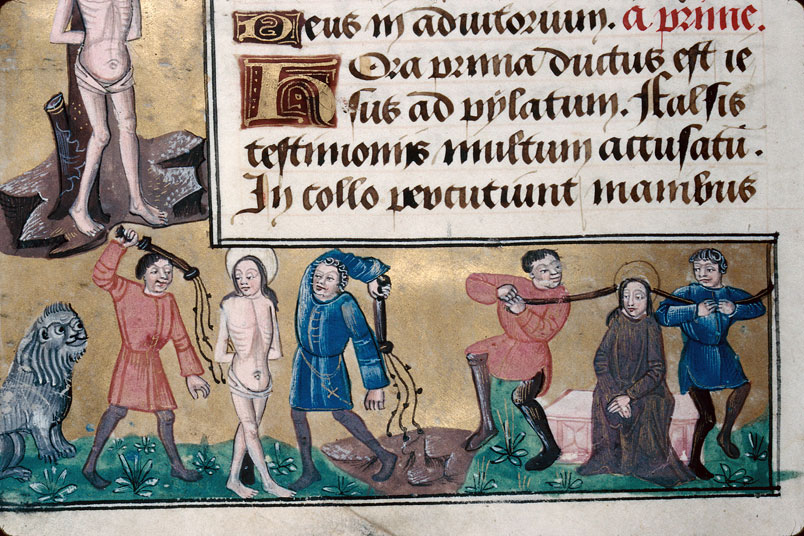 Deus in adiutorium. a prime.
Hora prima ductus est ie
sus ad pylatum. Falsis
testimoniis multum accusatū.
In collo percutiunt manibus